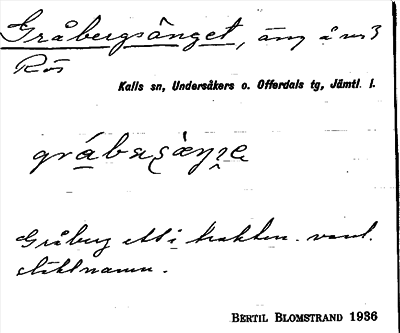 Gråbergsänget, äng å nr 3
Rös
Kalls sn, Undersåkers o. Offerdals tg, Jämtl. l.
Gråberg ett i trakten. vanl.
släktnamn.
BERTIL BLOMSTRAND 1936